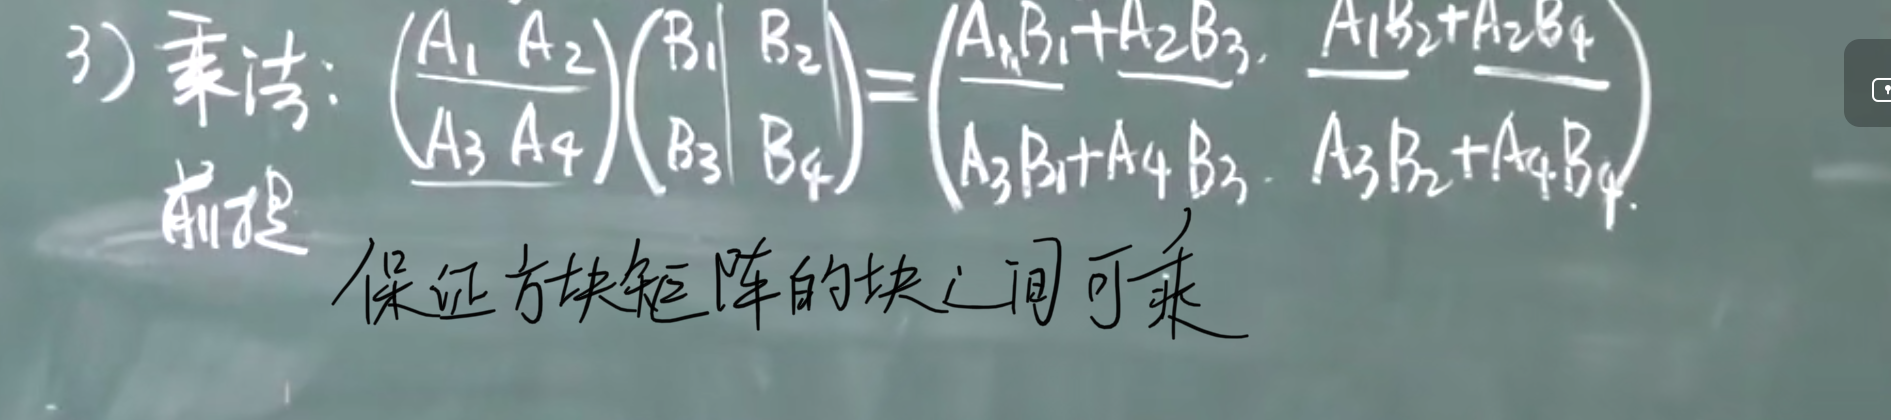 3) 乘法: (A₁ A₂ A₃ A₄)(B₁ B₂ B₃ B₄)=(A₁B₁+A₂B₃. A₁B₂+A₂B₄
A₃B₁+A₄B₃. A₃B₂+A₄B₄.)
前提
保证方块矩阵的块之间可乘